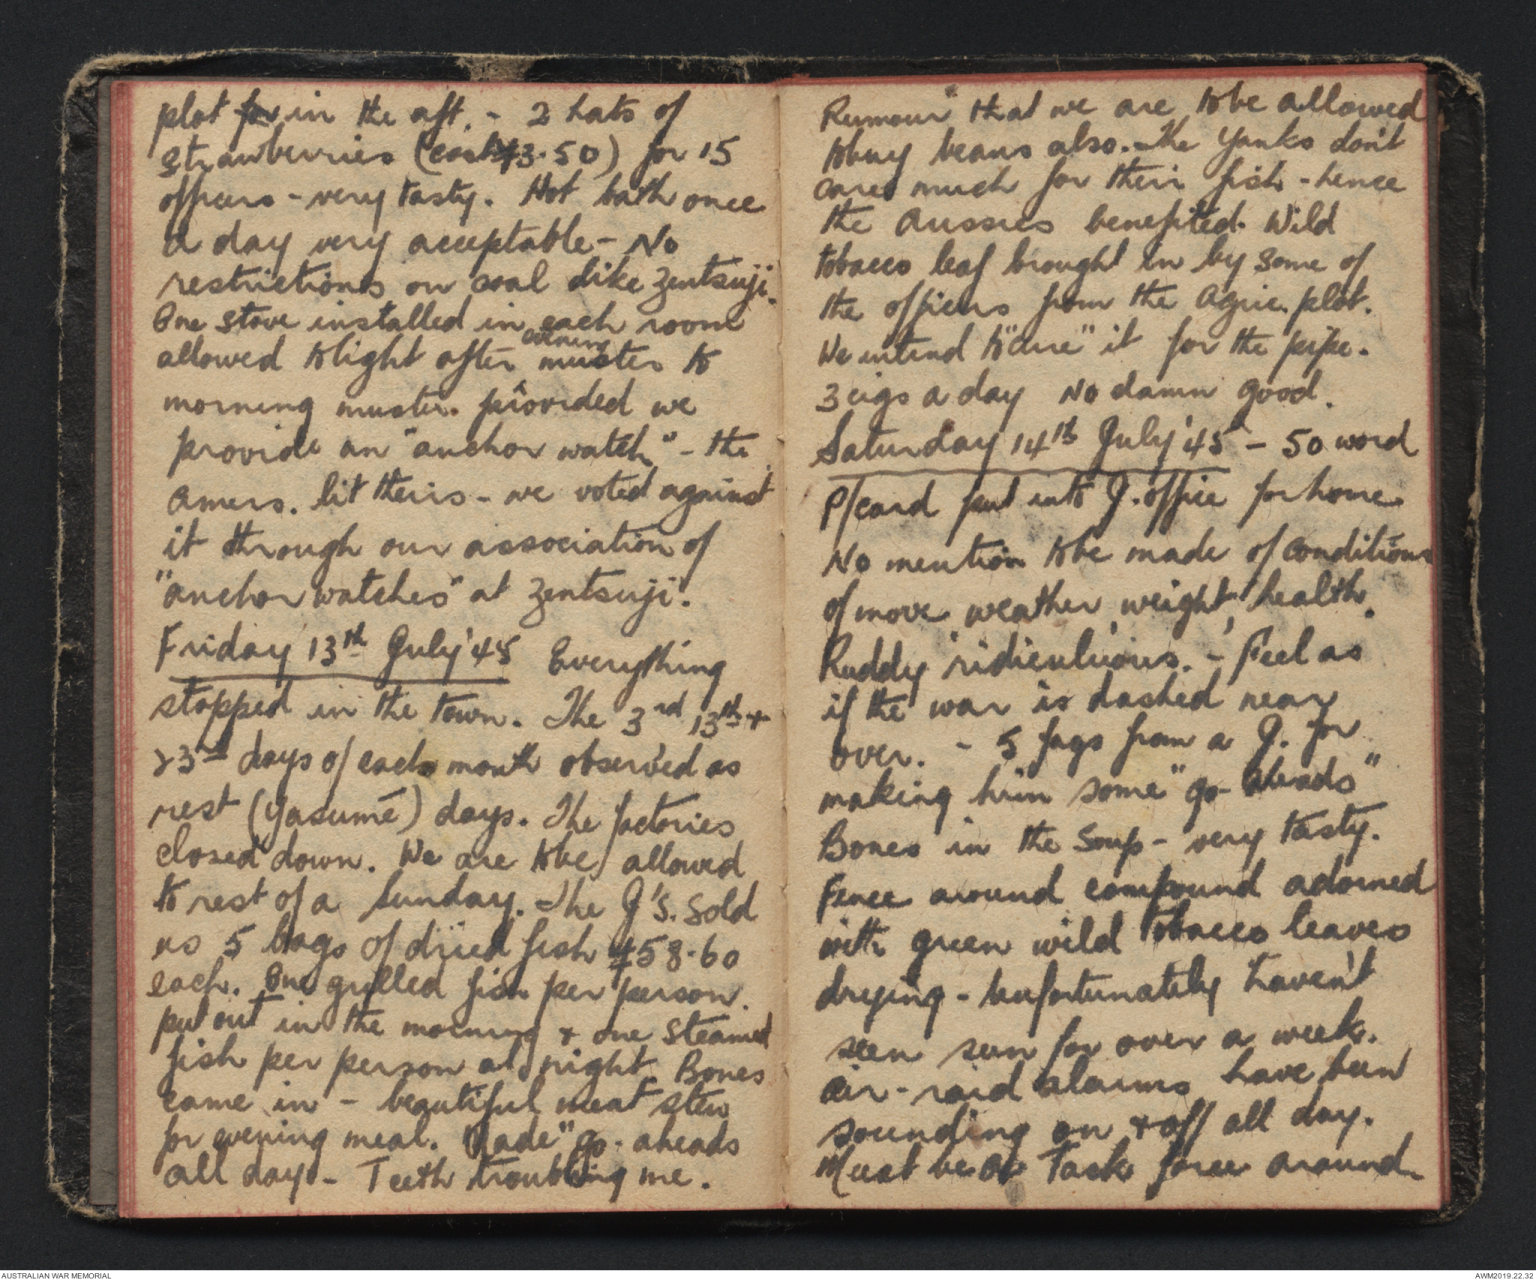 plot for in the aft. - 2 hats of
strawberries (cost ¥3.50) for 15
officers - very tasty. Hot bath once
a day very acceptable - No
restrictions on coal like Zentsuji.
One stove installed in each room
allowed to light after evening muster to
morning muster. provided we
provide an "anchor watch" - the
Amers. lit theirs - we voted against
it through our association of
"anchor watches" at Zentsuji.
Friday 13th July '45 Everything
stopped in the town. The 3rd 13th +
23rd days of each month observed as
rest (Yasumé) days. The factories
closed down. We are to be allowed
to rest of a Sunday. The J's. sold
us 5 bags of dried fish ¥58.60
each. One grilled fish per person
put out in the morning + one steamed
fish per person at night. Bones
came in - beautiful meat stew
for evening meal. Made "go-aheads
all day - Teeth troubling me.
Rumour that we are to be allowed
to buy beans also. The Yanks don't
care much for their fish - hence
the Aussies benefited. Wild
tobacco leaf brought in by some of
the officers from the Agric. plot.
We intend to "cure" it for the pipe.
3 cigs a day No damn good.
Saturday 14th July '45 - 50 word
P/card put into J. office for home
No mention to be made of conditions
of move weather, weight, health.
Ruddy ridiculuious. - Feel as
if the war is dashed near
over. - 5 fags from a J. for
making him some "go-aheads"
Bones in the soup - very tasty.
Fence around compound adorned
with green wild tobacco leaves
drying - unfortunately haven't
seen sun for over a week.
air-raid alarms have been
sounding on + off all day.
Must be a Task force around
AUSTRALIAN WAR MEMORIAL
AWM2019.22.32